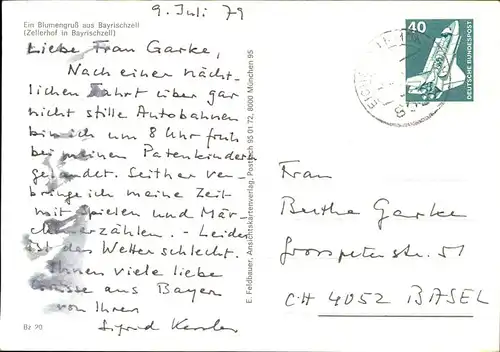 9. Juli 79
Ein Blumengruß aus Bayrischzell
(Zellerhof in Bayrischzell)
Liebe Frau Garke,
Nach einer nächt-
lichen Fahrt über gar
nicht stille Autobahnen
bin ich um 8 Uhr früh
bei meinen Patenkindern
gelandet. Seither ver-
bringe ich meine Zeit
mit Spielen und Mär-
chenerzählen. - Leider
ist das Wetter schlecht.
Ihnen viele liebe
Grüsse aus Bayern
von Ihrer
Sigrid
Bz 20
E. Feldbauer, Ansichtskartenverlag, Postfach 95 01 72, 8000 München 95
40
DEUTSCHE BUNDESPOST
Frau
Bertha Garke
Grosspeterstr. 51
CH 4052 BASEL